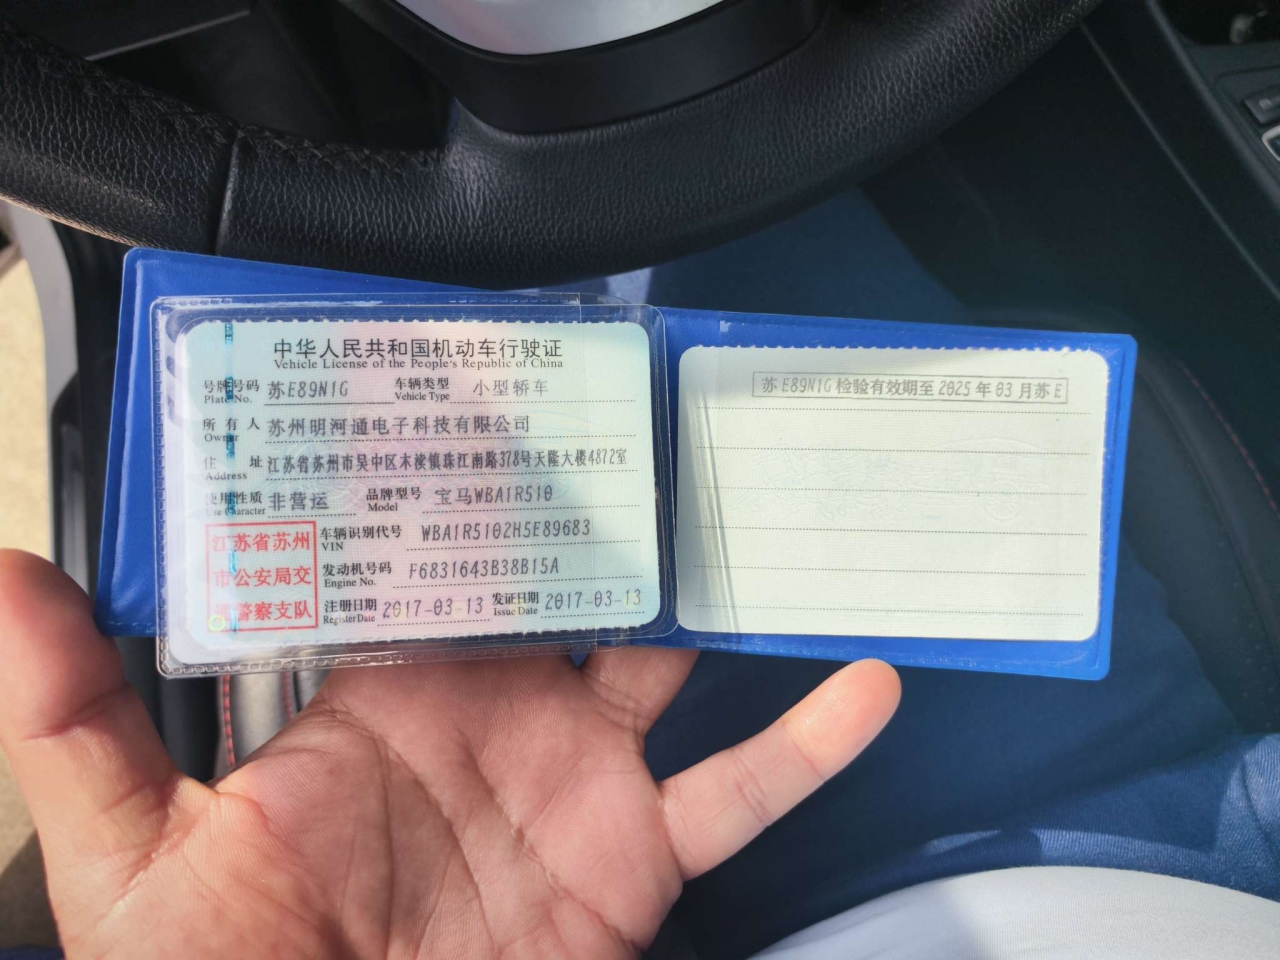 中华人民共和国机动车行驶证
Vehicle License of the People's Republic of China
号牌号码 苏E89N1G 车辆类型 小型轿车
Plate No. Vehicle Type
所有人 苏州明河通电子科技有限公司
Owner
住址 江苏省苏州市吴中区木渎镇珠江南路378号天隆大楼4872室
Address
使用性质 非营运 品牌型号 宝马WBA1R510
Use Character Model
江苏省苏州
市公安局交
通警察支队
车辆识别代号 WBA1R5102H5E89683
VIN
发动机号码 F6831643B38B15A
Engine No.
注册日期 2017-03-13 发证日期 2017-03-13
Register Date Issue Date
苏E89N1G检验有效期至2025年03月苏E